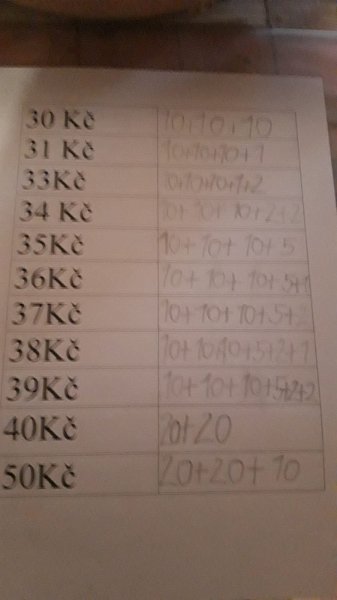 30 Kč 10+10+10
31 Kč 10+10+10+1
33Kč 10+10+10+1+2
34 Kč 10+10+10+2+2
35Kč 10+10+10+5
36Kč 10+10+10+5+1
37Kč 10+10+10+5+2
38Kč 10+10+10+5+2+1
39Kč 10+10+10+5+2+2
40Kč 20+20
50Kč 20+20+10